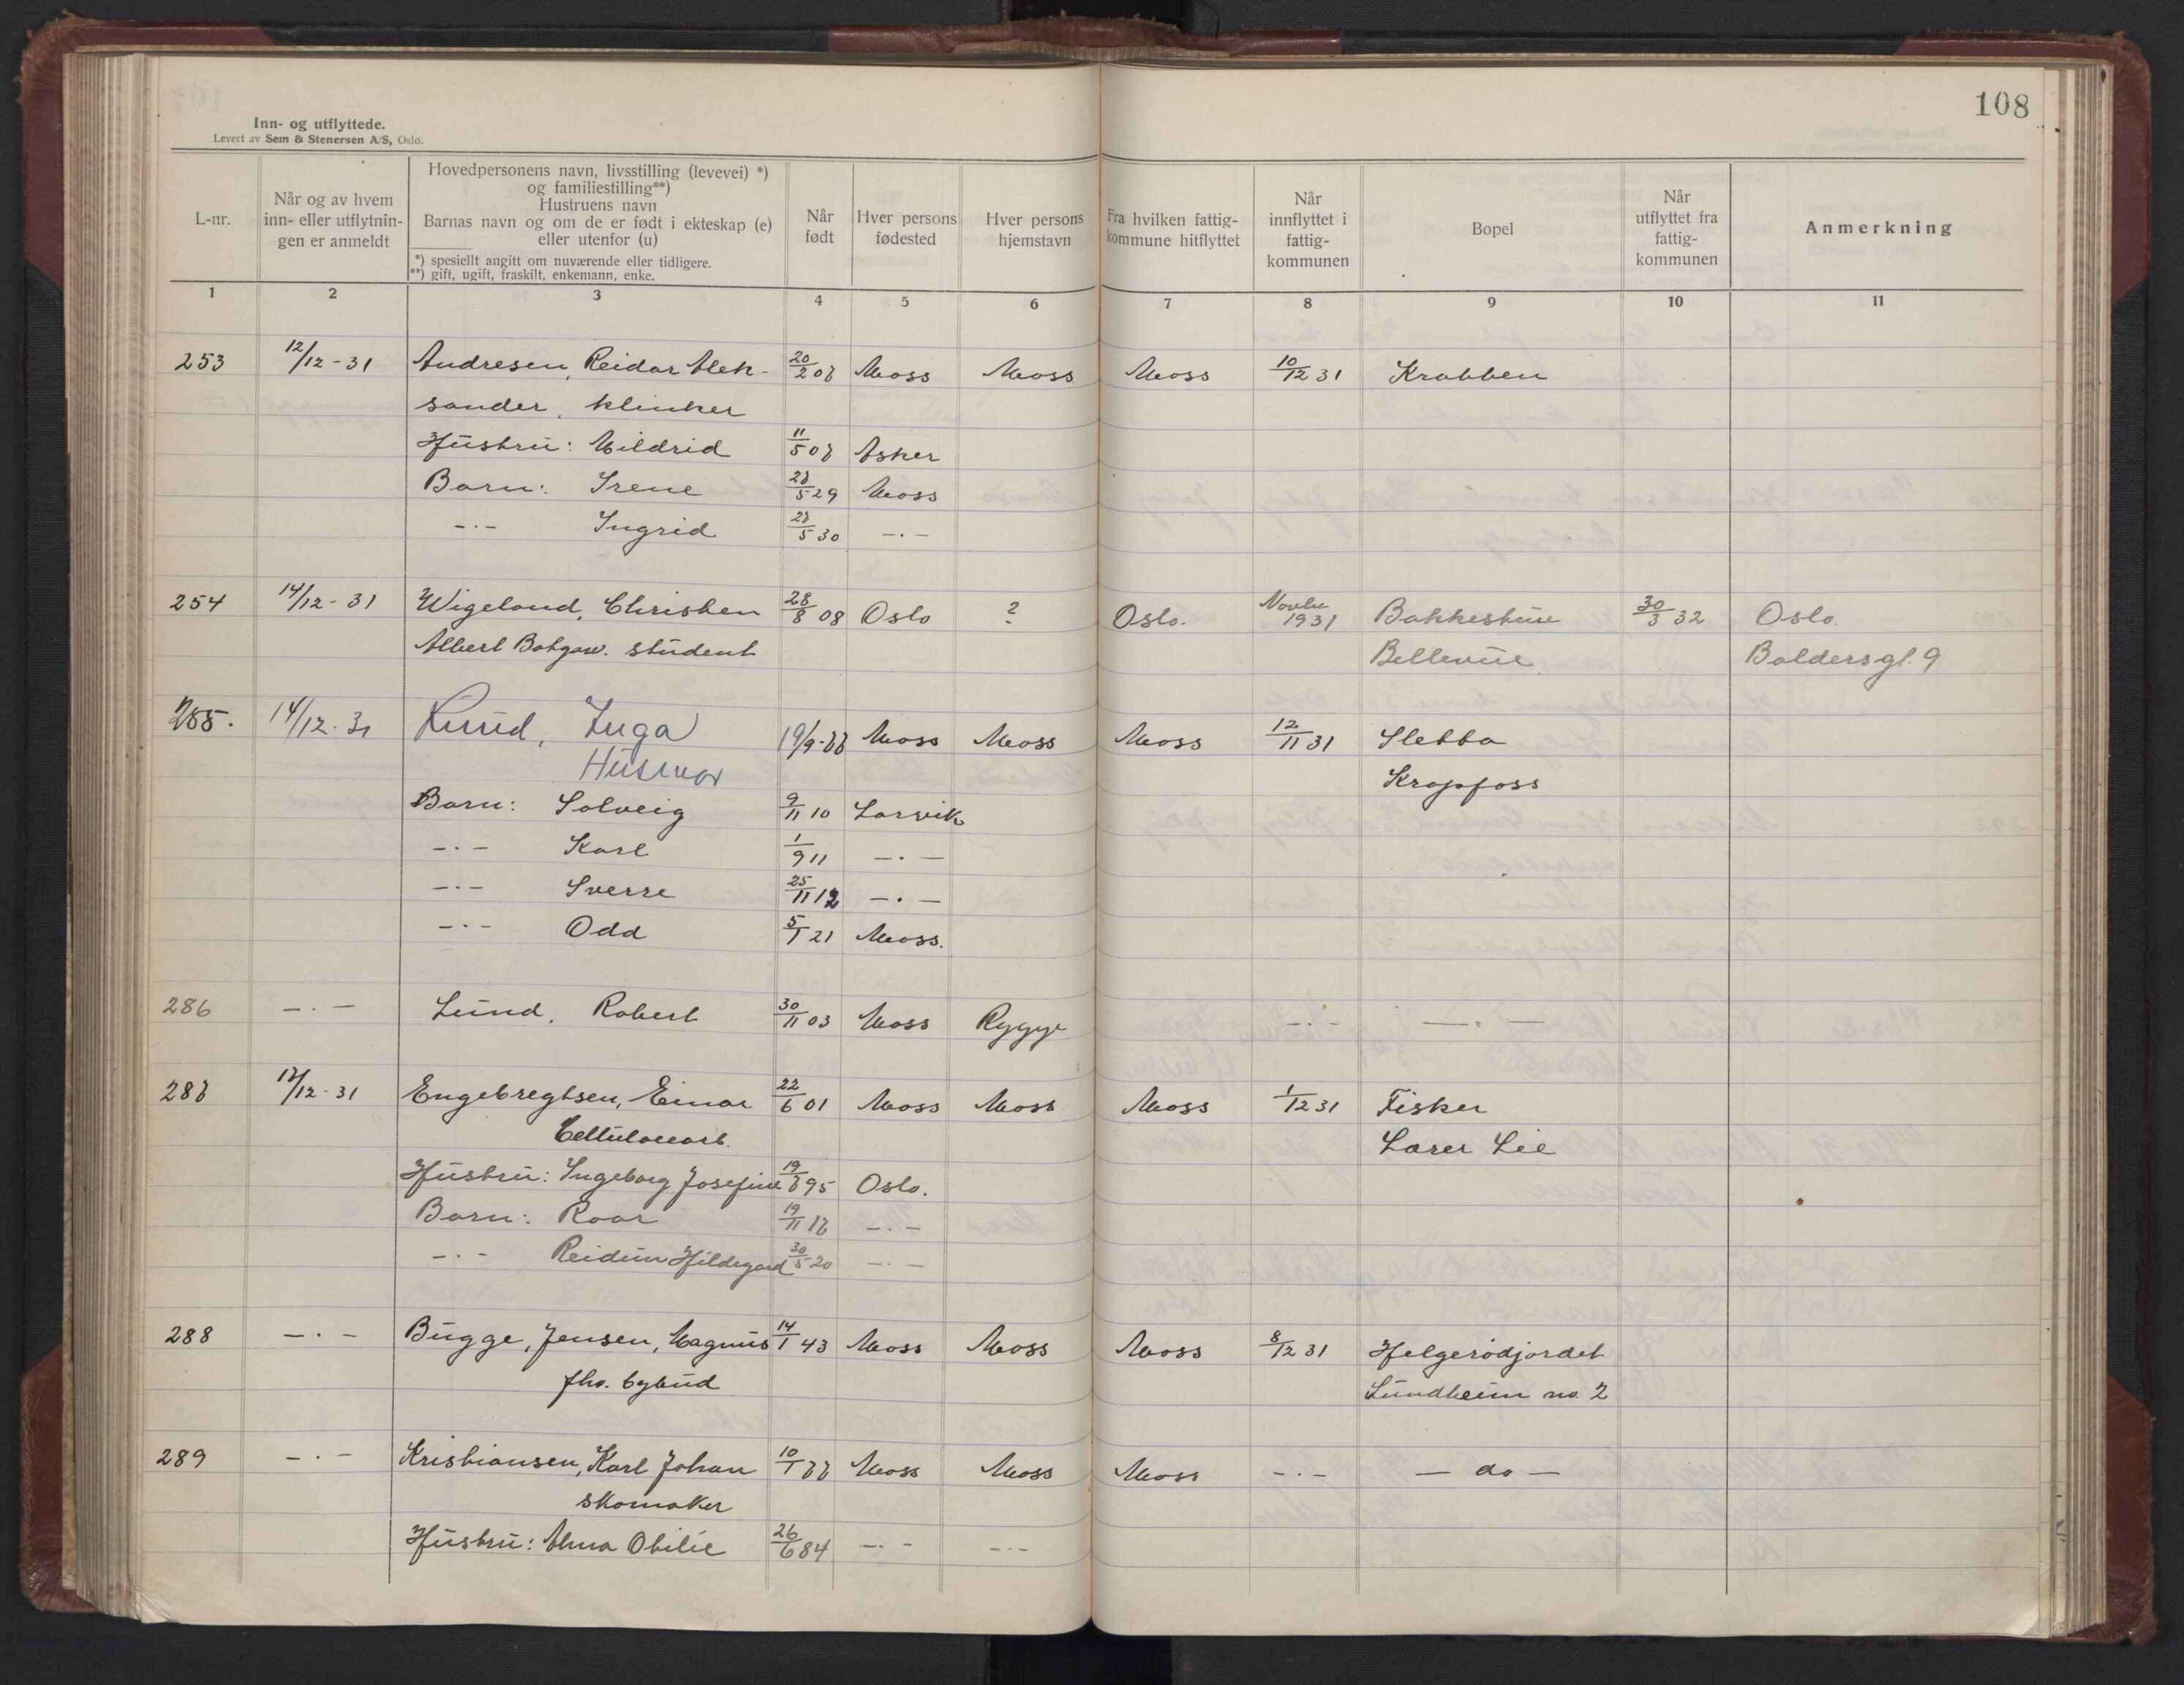 108
Inn- og utflyttede.
Levert av Sem & Stenersen A/S, Oslo.
L-nr.
Når og av hvem
inn- eller utflytnin-
gen er anmeldt
Hovedpersonens navn, livsstilling (levevei) *)
og familiestilling**)
Hustruens navn
Barnas navn og om de er født i ekteskap (e)
eller utenfor (u)
*) spesiellt angitt om nuværende eller tidligere.
**) gift, ugift, fraskilt, enkemann, enke.
Når
født
Hver persons
fødested
Hver persons
hjemstavn
Fra hvilken fattig-
kommune hitflyttet
Når
innflyttet i
fattig-
kommunen
Bopel
Når
utflyttet fra
fattig-
kommunen
Anmerkning
1 2 3 4 5 6 7 8 9 10 11
253 12/12-31 Andresen, Reidar Alek- 20/2 08 Moss Moss Moss 10/12 31 Krabben
sander, klinker
Hustru: Mildrid 11/5 08 Asker
Barn: Irene 28/5 29 Moss
-·- Ingrid 28/5 30 -·-
254 14/12-31 Wigeland, Christen 28/8 08 Oslo ? Oslo. Novbr 1931 Bakkestue 30/3 32 Oslo.
Albert student Bellevue Baldersgt. 9
14/12-31 Inga 19/9-88 Moss Moss Moss 12/11 31 Sletta
Husmor Kropfoss
Barn: Solveig 9/11 10 Larvik
-·- Karl 1/9 11 -·-
-·- Sverre 25/11 12 -·-
-·- Odd 5/1 21 Moss.
286 -·- Lund, Robert 30/11 03 Moss Rygge -·- -·-
288 12/12-31 Engebregtsen, Einar 22/6 01 Moss Moss Moss 1/12 31 Fisker
Cellulosearb. Larer Lie
Hustru: Ingeborg Josefine 19/8 95 Oslo.
Barn: Roar 19/11 18 -·-
-·- Reidun Hildegard 30/5 20 -·-
288 -·- Bugge, Jensen, Magnus 14/1 43 Moss Moss Moss 8/12 31 Helgerødjordet
fhv. bybud Lundheim no. 2
289 -·- Kristiansen, Karl Johan 10/1 88 Moss Moss Moss -·- - do -
skomaker
Hustru: Alma Otilie 26/6 84 -·- -·-